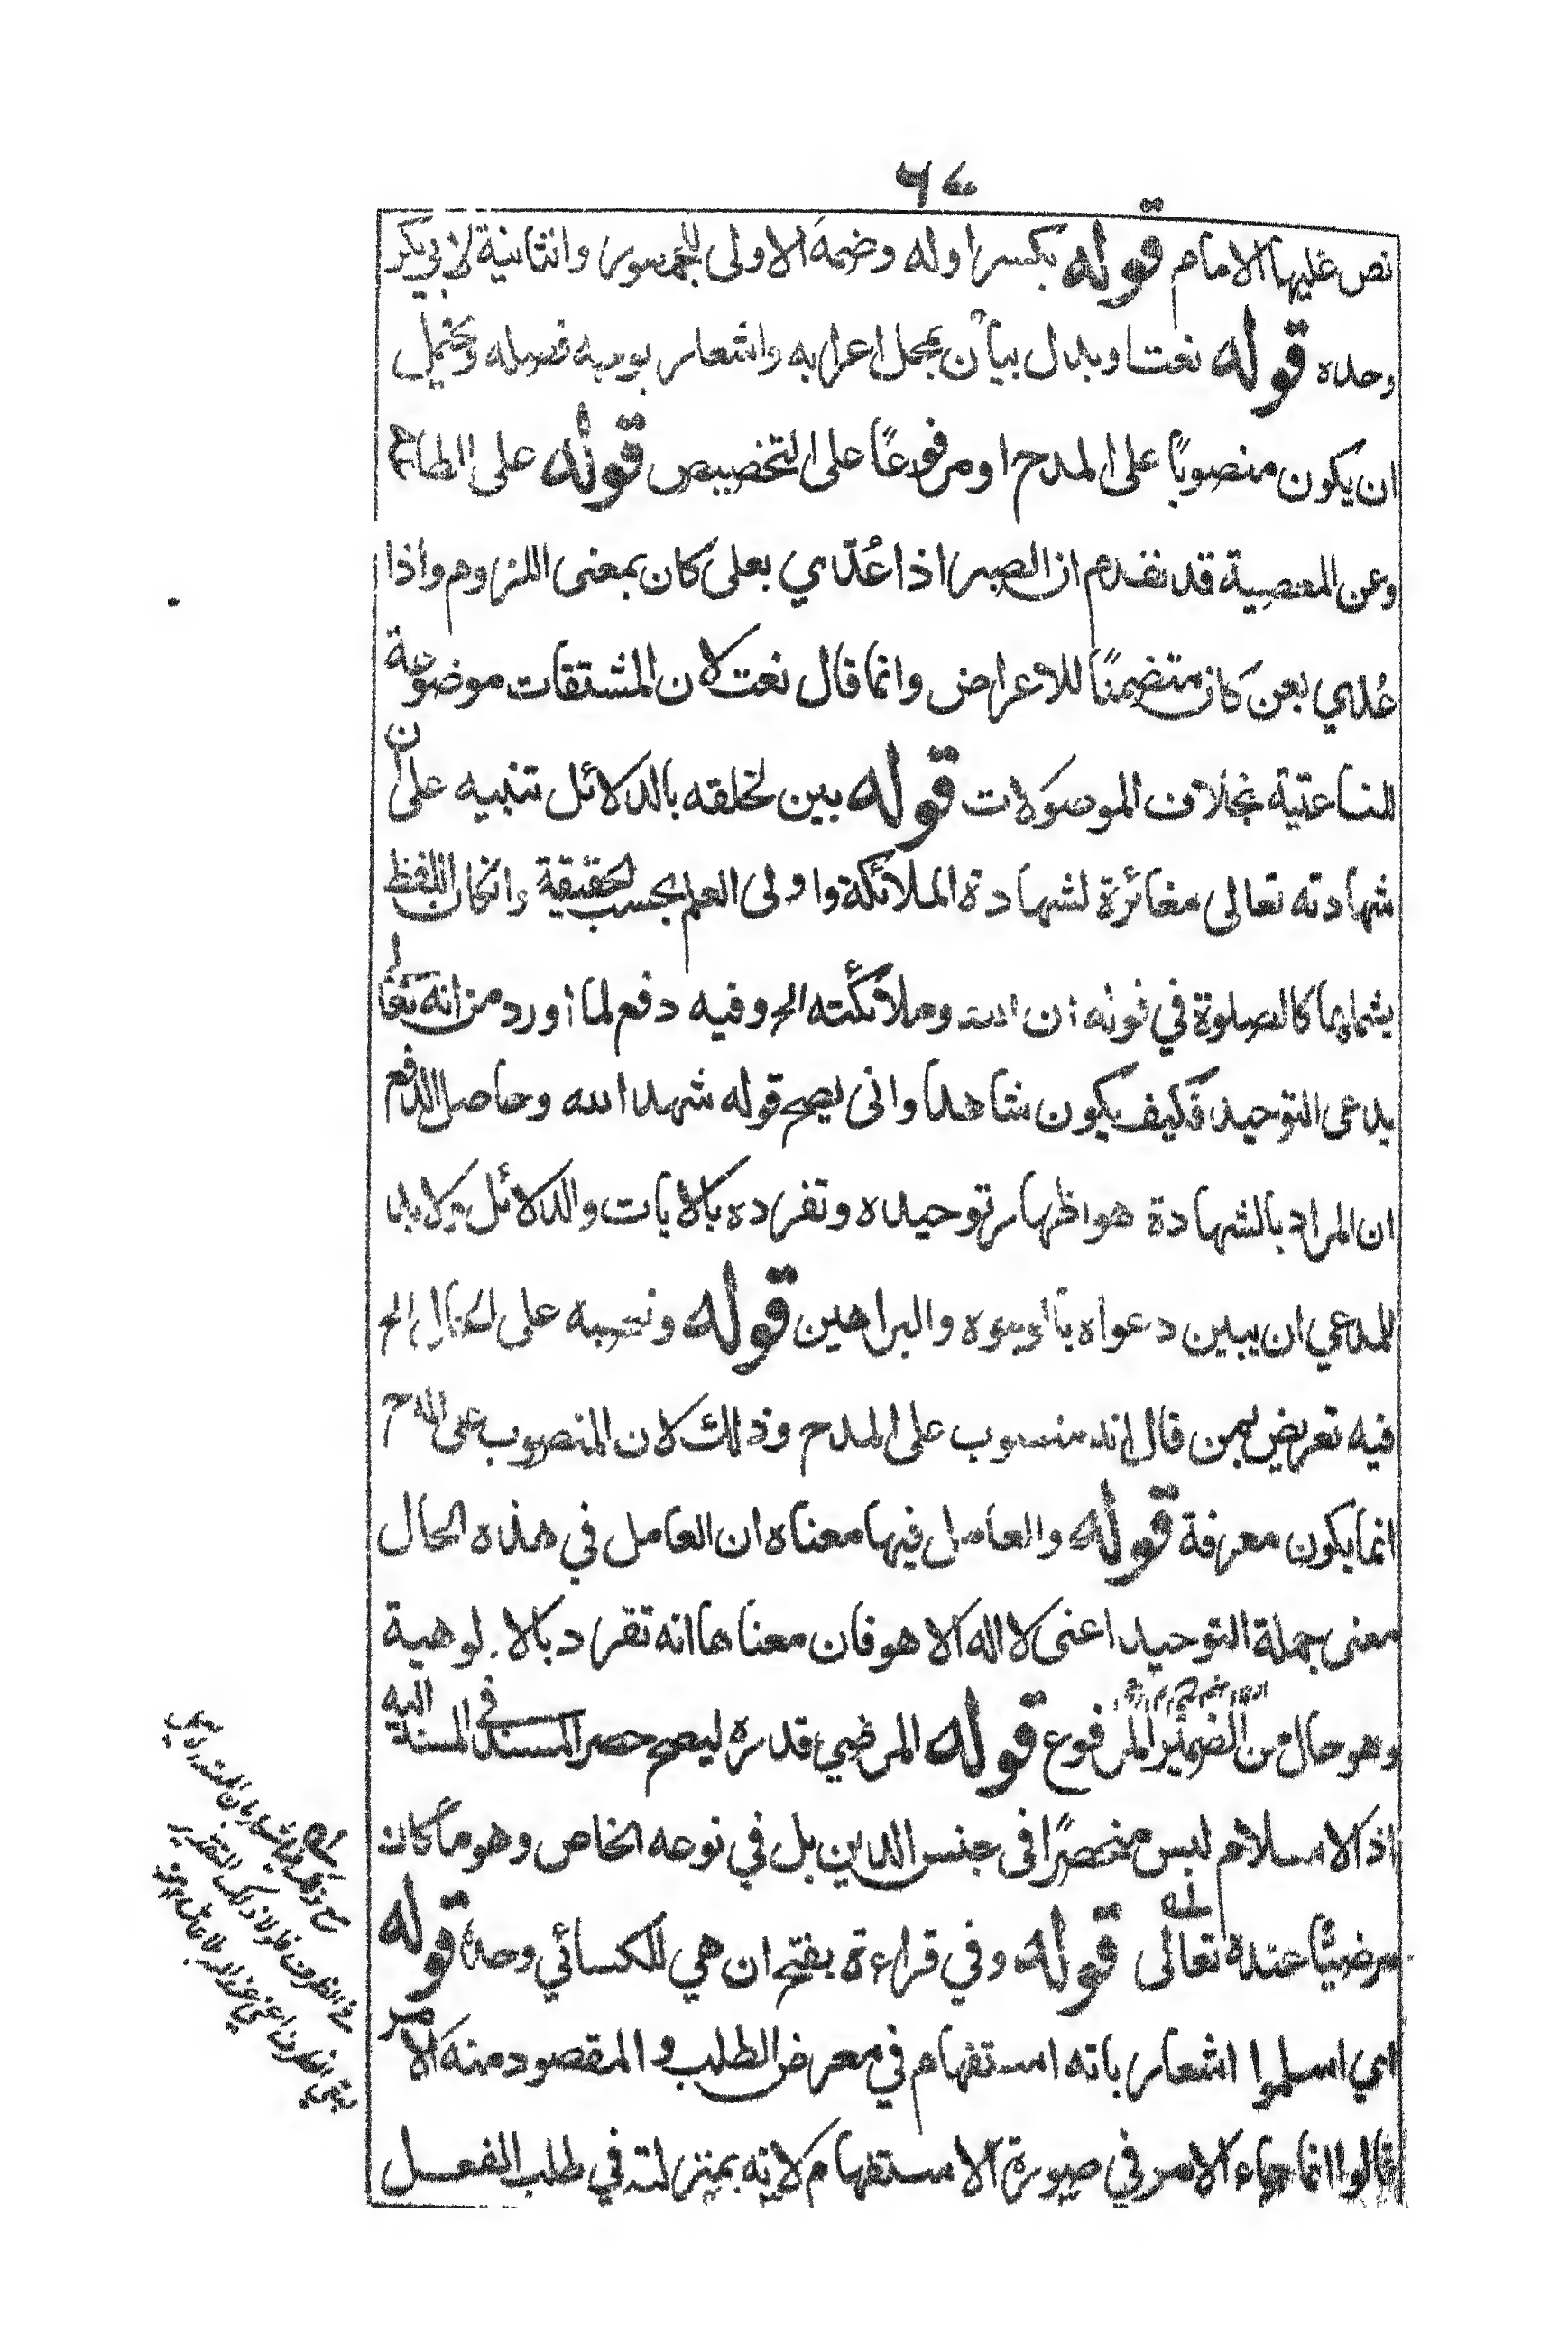 ٦٧
نص عليها الامام قوله بكسر اوله وضمه الاولى للجمهور والثانية لابي بكر
وحده قوله نعت او بدل بيان بمجمل اعرابه واشعار بوجه فصله ويحتمل
ان يكون منصوبًا على المدح او مرفوعًا على التخصيص قوله على الطاعة
وعن المعصية قد تقدم ان الصبر اذا عُدّي بعلى كان بمعنى اللزوم واذا
عُدي بعن كان متضمنًا للاعراض وانما قال نعت لان المشتقات موضوعة
للناعتية بخلاف الموصولات قوله بين لخلقه بالدلائل تنبيه على ان
شهادته تعالى مغائرة لشهادة الملائكة واولى العلم بحسب الحقيقة وانكان اللفظ
يشملهما كالصلوة في قوله ان الله وملائكته الخ وفيه دفع لما اورد من انه تعالى
يدعى التوحيد فكيف يكون شاهدا وانى يصح قوله شهد الله وحاصل الدفع
ان المراد بالشهادة هو اظهار توحيده وتفرده بالايات والدلائل اذ لا بد
للمدعي ان يبين دعواه بالوجوه والبراهين قوله ونصبه على الحال الخ
فيه تعريض لمن قال انه منصوب على المدح وذلك لان المنصوب على المدح
انما يكون معرفة قوله والعامل فيها معناه ان العامل في هذه الحال
معنى جملة التوحيد اعنى لا اله الا هو فان معناها انه تفرد بالالوهية
وهو حال من الضمير المرفوع قوله المرضي قدره ليصح حصر المسند في المسند اليه
اذ الاسلام ليس منحصرًا في جنس الدين بل في نوعه الخاص وهو ما كان
مرضيًّا عنده تعالى قوله وفي قراءة بفتح ان هي للكسائي وحده قوله
اي اسلموا اشعار بانه استفهام في معرض الطلب والمقصود منه الامر
قالوا انما جاء الامر في صورة الاستفهام لانه بمنزلته في طلب الفعل